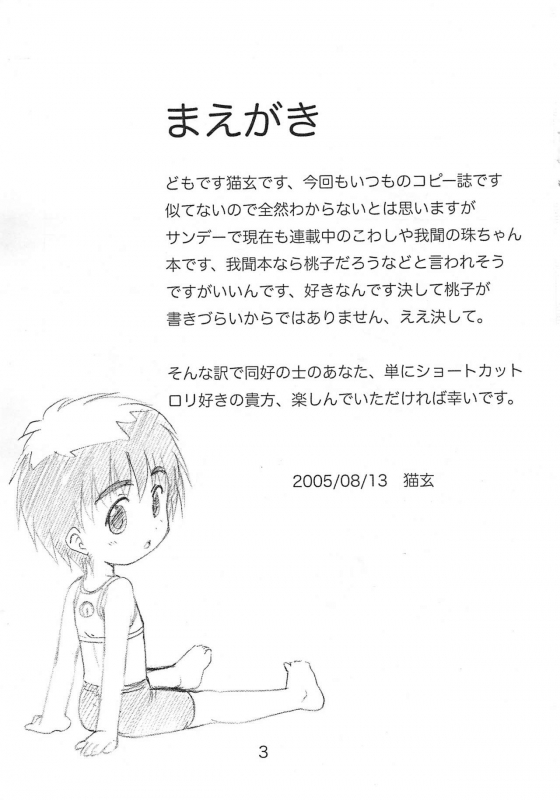 まえがき
どもです猫玄です、今回もいつものコピー誌です
似てないので全然わからないとは思いますが
サンデーで現在も連載中のこわしや我聞の珠ちゃん
本です、我聞本なら桃子だろうなどと言われそう
ですがいいんです、好きなんです決して桃子が
書きづらいからではありません、ええ決して。
そんな訳で同好の士のあなた、単にショートカット
ロリ好きの貴方、楽しんでいただければ幸いです。
2005/08/13　猫玄
3